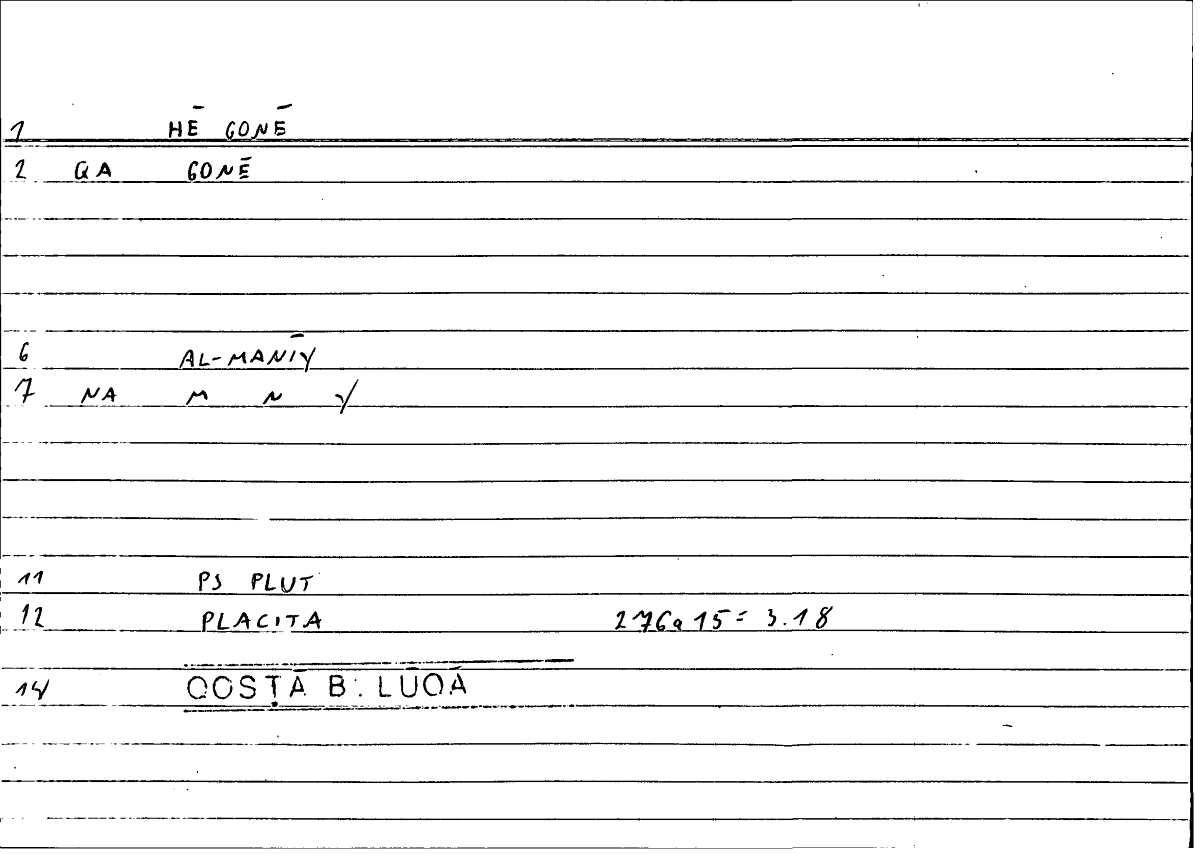 1 HĒ GONĒ
2 QA GONĒ
6 AL-MANĪY
7 NA M N Y
11 PS PLUT
12 PLACITA 276a15= 3.18
14 QOSṬĀ B. LŪQĀ